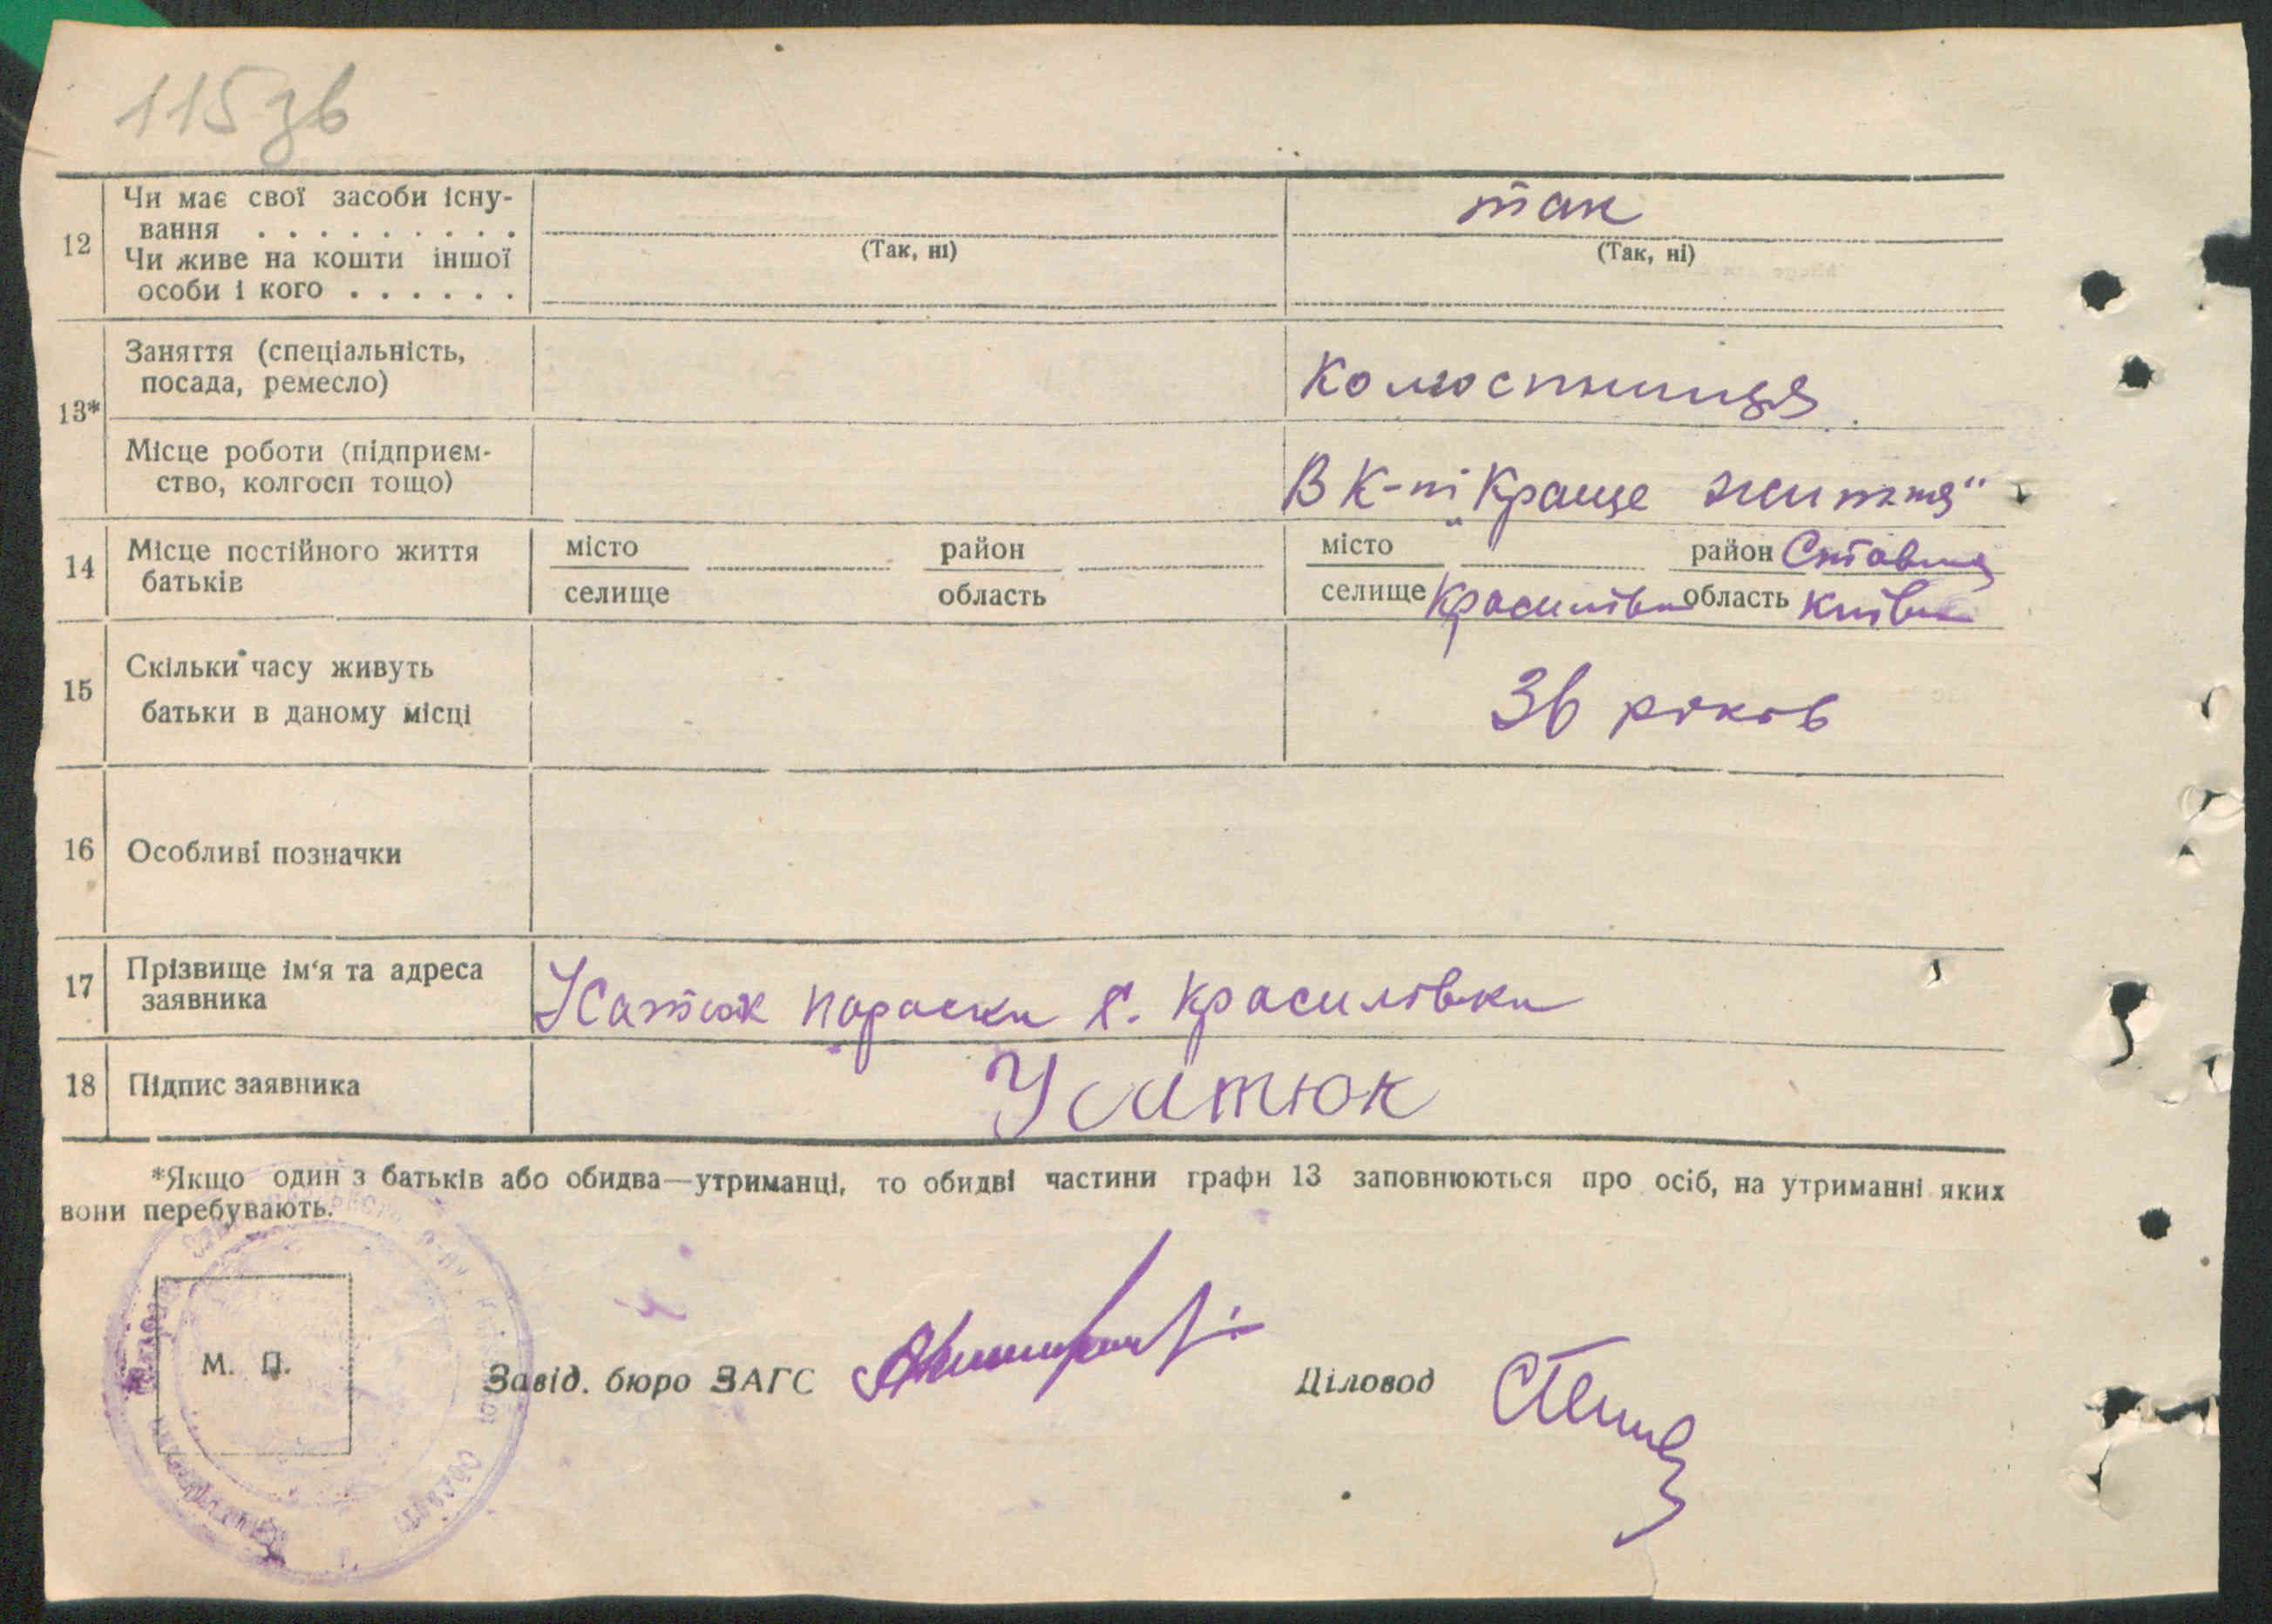 115зв
12
Чи має свої засоби існу-
вання . . . . . . . . .
Чи живе на кошти іншої
особи і кого . . . . . .
(Так, ні)
так
(Так, ні)
13*
Заняття (спеціальність,
посада, ремесло)
колгоспниця
Місце роботи (підприєм-
ство, колгосп тощо)
В к-пі „Краще життя"
14
Місце постійного життя
батьків
місто район
селище область
місто район Ставищ
селище Красилівка область Київськ
15
Скільки часу живуть
батьки в даному місці
36 років
16
Особливі позначки
17
Прізвище ім'я та адреса
заявника
Параски с. Красилівки
18
Підпис заявника
*Якщо один з батьків або обидва—утриманці, то обидві частини графи 13 заповнюються про осіб, на утриманні яких
вони перебувають.
М. П.
Завід. бюро ЗАГС
Діловод